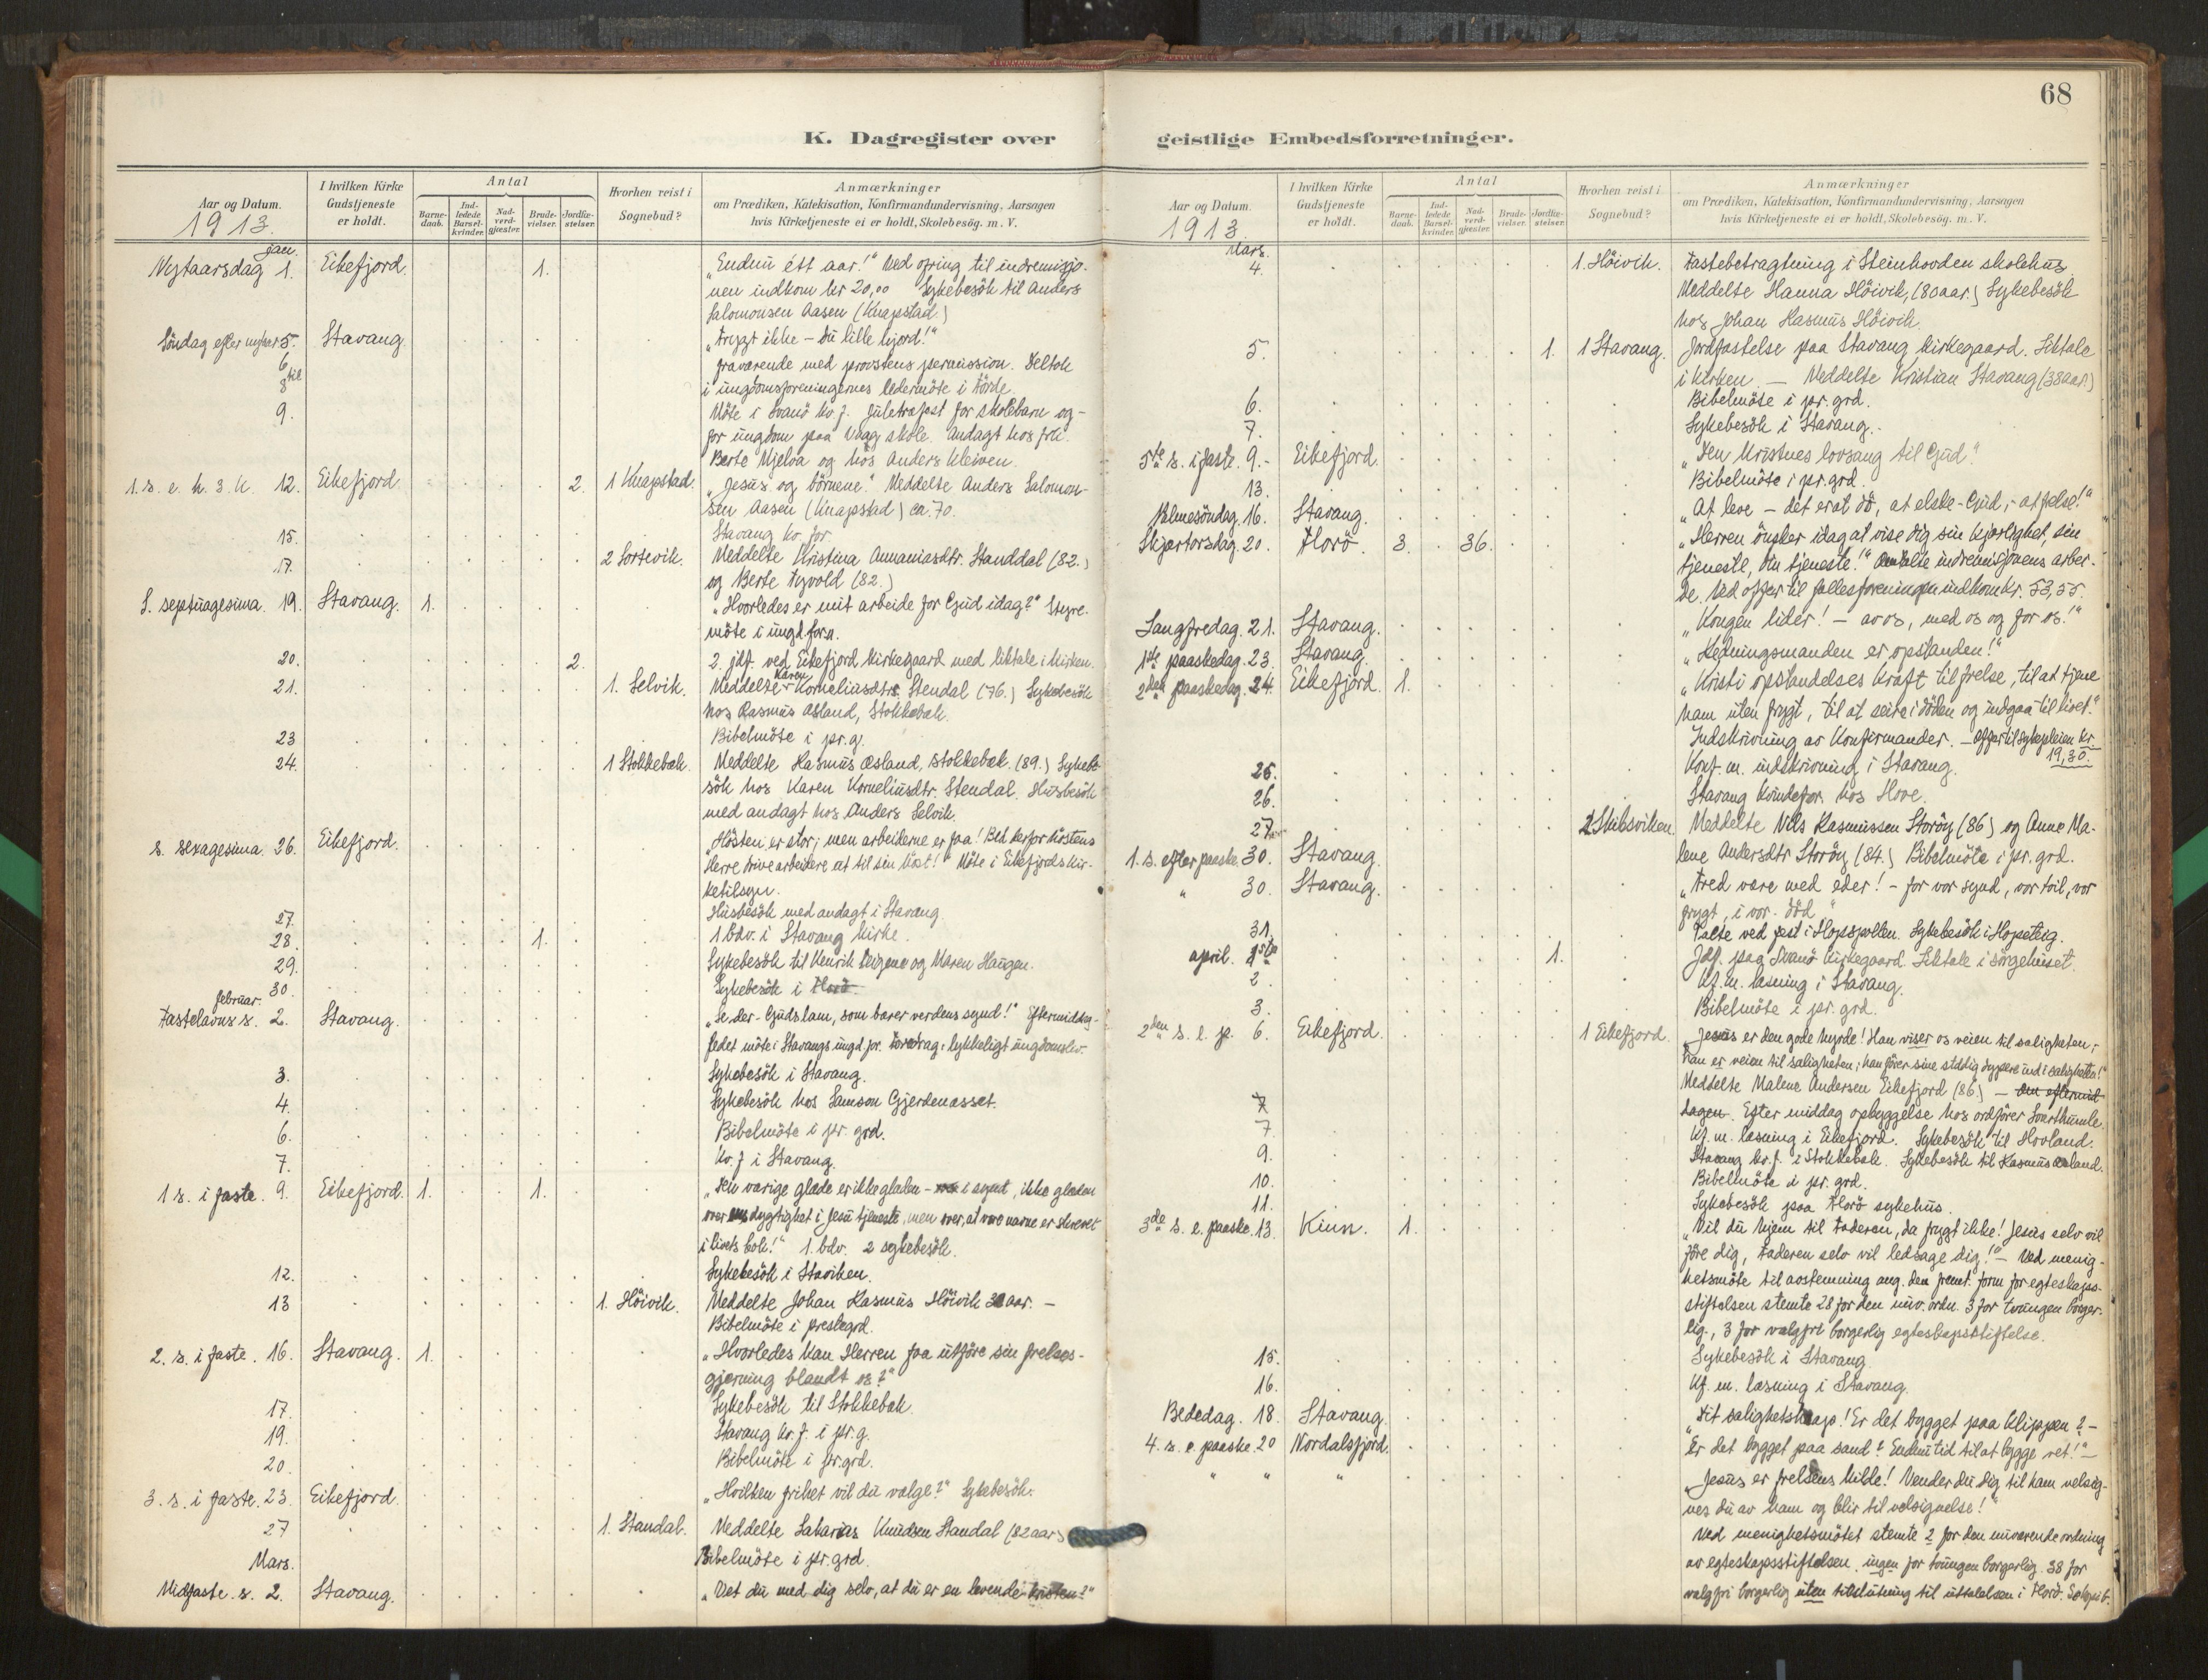 68
K. Dagregister over geistlige Embedsforretninger.
Aar og Datum.
1913.
I hvilken Kirke Gudstjeneste er holdt.
Antal
Barne-daab.
Ind-ledede Barsel-kvinder.
Nad-verd-gjæster.
Brude-vielser.
Jordfæ-stelser.
Hvorhen reist i Sognebud?
Anmærkninger
om Prædiken, Katekisation, Konfirmandundervisning, Aarsagen
hvis Kirketjeneste ei er holdt, Skolebesøg. m. V.
jan.
Nytaarsdag 1. Eikefjord. 1. „Endnu ett aar!" Ved ofring til indremisjo-
nen indkom kr 20,00 Sykebesök til Anders
Salomonsen Aasen (Knapstad.)
Söndag efter nytaar 5. Stavang. „Frygt ikke – du lille hjord!"
6 til 8 Fraværende med provstens permission. Deltok
i ungdomsforeningernes ledermöte i Förde.
9. Möte i Svanö kv.f. Juletræfest for skolebarn og –
for ungdom paa Vaag skole. Andagt hos frk.
Berte Mjelva og hos Anders Kleiven.
1. s. e. h. 3. k. 12. Eikefjord 2. 1 Knapstad. „Jesus og börnene." Meddelte Anders Salomon-
sen Aasen (Knapstad) ca. 70.
15. Stavang kv. for.
17. 2 Sortevik. Meddelte Kristina Annaniasdtr. Standdal (82.)
og Berte Tyvold (82.)
S. septuagesima. 19. Stavang. 1. „Hvorledes er mit arbeide for Gud idag?" Styre-
möte i ungd.for.n.
20. 2. 2. jdf. ved Eikefjord kirkegaard med liktale i kirken.
21. 1. Selvik. Meddelte Karen Korneliusdtr. Stendal (76.) Sykebesök
hos Rasmus Æsland, Stokkebæk.
23 Bibelmöte i pr.g.
24. 1 Stokkebæk. Meddelte Rasmus Æsland, Stokkebæk. (89.) Sykebe-
sök hos Karen Korneliusdtr. Stendal. Husbesök
med andagt hos Anders Selvik.
S. sexagesima. 26. Eikefjord. „Hösten er stor; men arbeiderne er faa! Bed derfor höstens
Herre drive arbeidere ut til sin höst!" Möte i Eikefjords kir-
ketilsyn.
27. Husbesök med andagt i Stavang.
28. 1. 1 bdv. i Stavang kirke.
29. Sykebesök til Henrik and Maren Haugen.
30. Sykebesök i Florö.
februar.
Fastelavns s. 2. Stavang. „Se der – Guds lam, som bærer verdens synd!" Eftermiddag-
ledet möte i Stavangs ungd.for. Foredrag: lykkeligt ungdomsliv.
3. Sykebesök i Stavang.
4. Sykebesök hos Samson Gjerdenæsset.
6. Bibelmöte i pr. grd.
7. Kv. f i Stavang.
1 s. i faste. 9. Eikefjord. 1. 1. „Den varige glæde er ikke glæden – i synet, ikke glæden
over dygtighet i Jesu tjeneste, men over, at vore navne er skrevet
i livets bok!" 1. bdv. 2 sykebesök.
12. Sykebesök i Staviken.
13 1. Höivik. Meddelte Johan Rasmus Höivik aar. –
Bibelmöte i prestegrd.
2. s. i faste. 16. Stavang. 1. „Hvorledes kan Herren faa utföre sin frelses-
gjerning blandt os?"
17. Sykebesök til Stokkebæk.
19. Stavang kv. f. i pr. g.
20. Bibelmöte i pr.grd.
3. s. i faste. 23. Eikefjord. „Hvilken frihet vil du vælge?" Sykebesök.
27 1. Standal. Meddelte Sakarias Knudsen Standal (82 aar)
Bibelmöte i pr.grd.
Mars.
Midfaste. s. 2. Stavang. „Vet du med dig selv, at du er en levende kristen?"
Aar og Datum.
1913.
I hvilken Kirke Gudstjeneste er holdt.
Antal
Barne-daab.
Ind-ledede Barsel-kvinder.
Nad-verd-gjæster.
Brude-vielser.
Jordfæ-stelser.
Hvorhen reist i Sognebud?
Anmærkninger
om Prædiken, Katekisation, Konfirmandundervisning, Aarsagen
hvis Kirketjeneste ei er holdt, Skolebesøg. m. V.
Mars.
4. 1. Höivik. Fastebetragtning i Steinhovden skolehus.
Meddelte Hanna Höivik, (80 aar.) Sykebesök
hos Johan Rasmus Höivik.
5. 1. 1 Stavang. Jordfæstelse paa Stavang kirkegaard. Liktale
i kirken. – Meddelte Kristian Stavang (38 aar)
6. Bibelmöte i pr. grd.
7. Sykebesök i Stavang. –
5te s. i faste. 9. – Eikefjord. „Den kristnes lovsang til Gud."
13. Bibelmöte i pr.grd.
Palmesöndag. 16. Stavang. „At leve – det er at dö, at elske – Gud, – at frelse!"
Skjærtorsdag. 20. Florö. 3. 36. „Herren önsker idag at vise dig sin kjærlighet, sin
tjeneste, din tjeneste!" Omtalte indremisjonens arbei-
de. Ved offer til fællesforeningen indkom kr. 53,55.
Langfredag. 21. Stavang. „Kongen lider! – av os, med os og for os!"
1ste paaskedag. 23. Stavang. „Redningsmanden er opstanden!"
2den paaskedag. 24. Eikefjord. 1. „Kristi opstandelses kraft til frelse, til at tjene
ham uten frygt, til at seire i döden og indgaa til livet."
Indskrivning av Konfirmander. – Offer til sykepleien kr. 19,30.
25. Konf. m. indskrivning i Stavang.
26. Stavang kvindefor. hos Hove.
27 2 Skibsviken. Meddelte Nils Rasmussen Storöy (86) og Anne Ma-
lene Andersdtr Storöy (84.) Bibelmöte i pr. grd.
1. s. efter paaske. 30. Stavang. „Fred være med eder! – for vor synd, vor tvil, vor
" 30. Stavang. frygt, i vor död"
31. Talte ved fest i Hopspollen. Sykebesök i Hopeteig.
april. 1ste 1. Jdf. paa Svanö kirkegaard. Liktale i sörgehuset.
2. Kf. m. læsning i Stavang.
3. Bibelmöte i pr. grd.
2den s. e. p. 6. Eikefjord. 1 Eikefjord. Jesus er den gode hyrde! Han viser os veien til saligheten; –
han er veien til saligheten; han förer sine stadig dypere ind i saligheten!"
Meddelte Malene Andersen Eikefjord (86.) – den eftermid-
7 dagen. Efter middag opbyggelse hos ordförer Svarthumle.
7 Kf. m. læsning i Eikefjord. Sykebesök til Hovland.
9. Stavang kv. f. i Stokkebæk. Sykebesök til Rasmus Æsland.
10. Bibelmöte i pr. grd.
11. Sykebesök paa Florö sykehus.
3de s. e. paaske. 13. Kinn. 1. „Vil du hjem til Faderen, da frygt ikke! Jesus selv vil
före dig, Faderen selv vil ledsage dig!" – Ved menig-
hetsmöte til avstemning ang. den fremt. form for egteskaps-
stiftelsen stemte 28 for den nuv. ordn. 3 for tvungen borger-
lig., 3 for valgfri borgerlig egteskapsstiftelse.
15. Sykebesök i Stavang.
16. Kf. m. læsning i Stavang.
Bededag. 18. Stavang. „Dit salighetshaap! Er det bygget paa klippen? –
4. s. e. paaske. 20 Nordalsfjord. Er det bygget paa sand? Endnu tid til at bygge ret!" –
" " " „Jesus er frelsens kilde! Vender du dig til ham velsig-
nes du av ham og blir til velsignelse!"
Ved menighetsmötet stemte 2 for den nuværende ordning
av egteskapsstiftelsen. ingen for tvungen borgerlig. 38 for
valgfri borgerlig uten tilslutning til uttalelsen i Florö.